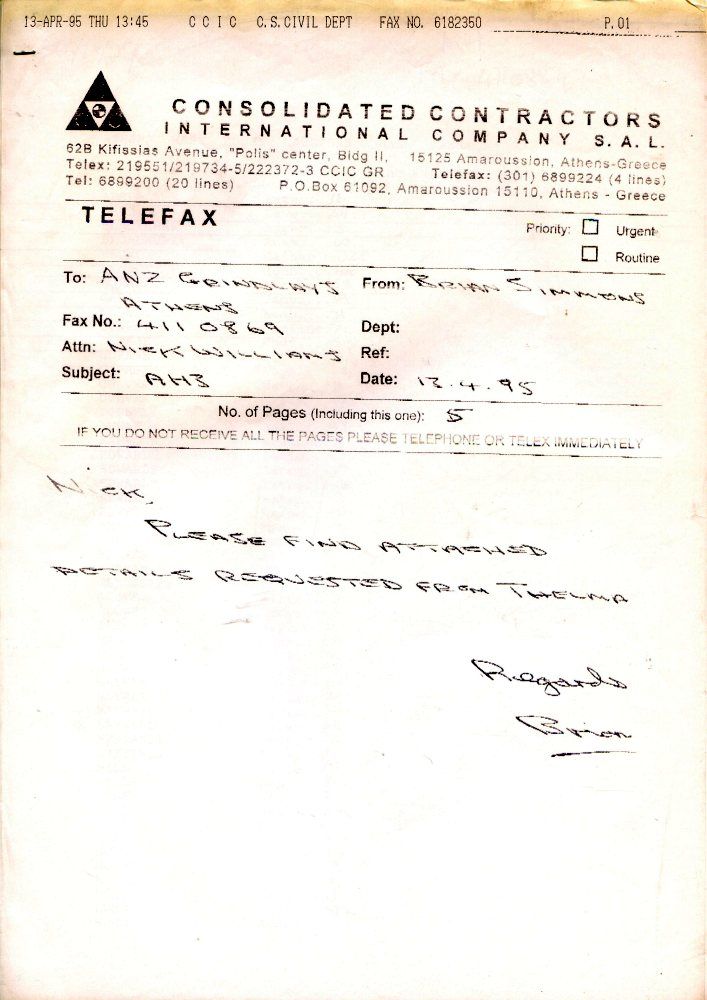 13-APR-95 THU 13:45 C C I C C.S.CIVIL DEPT FAX NO. 6182350 P.01
CONSOLIDATED CONTRACTORS
INTERNATIONAL COMPANY S.A.L.
62B Kifissias Avenue, "Polis" center, Bldg II, 15125 Amaroussion, Athens-Greece
Telex: 219551/219734-5/222372-3 CCIC GR Telefax: (301) 6899224 (4 lines)
Tel: 6899200 (20 lines) P.O.Box 61092, Amaroussion 15110, Athens - Greece
TELEFAX
Priority: Urgent
Routine
To: ANZ GRINDLAYS From: BRIAN SIMMONS
ATHENS
Fax No.: 411 0869 Dept:
Attn: NICK WILLIAMS Ref:
Subject: AH3 Date: 13.4.95
No. of Pages (Including this one): 5
IF YOU DO NOT RECEIVE ALL THE PAGES PLEASE TELEPHONE OR TELEX IMMEDIATELY
NICK,
PLEASE FIND ATTACHED
DETAILS REQUESTED FROM THELMA
Regards
Brian